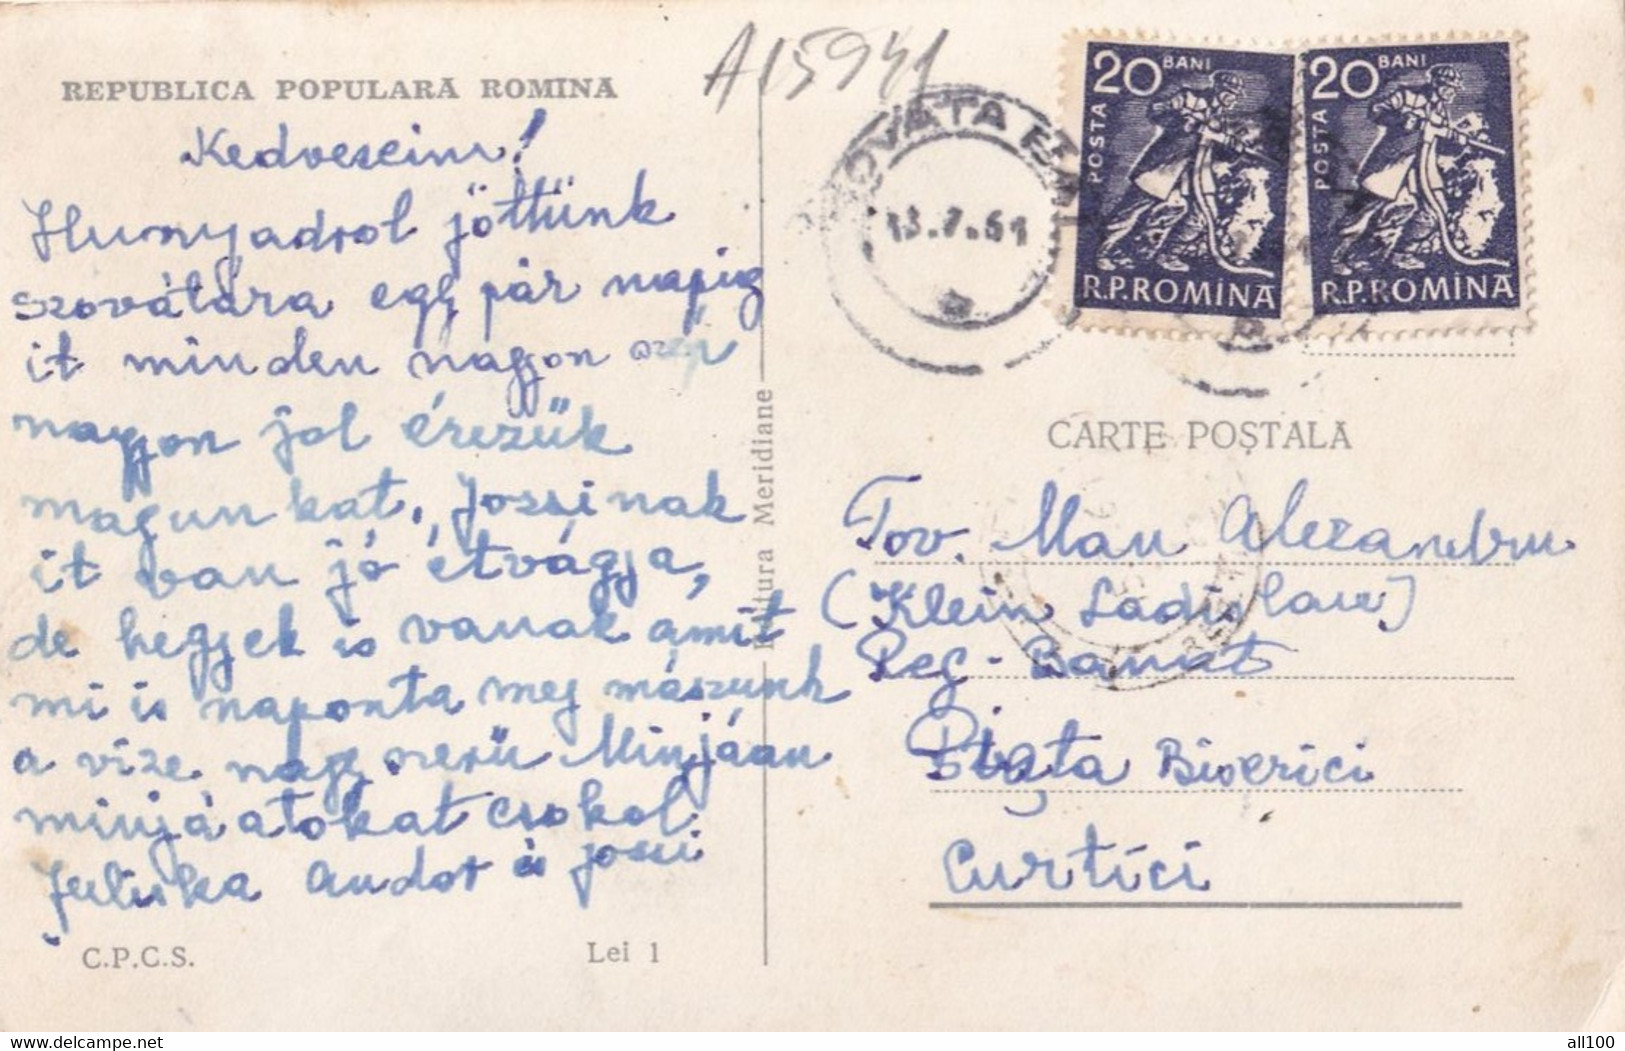 A15941
REPUBLICA POPULARĂ ROMINĂ
Kedveseim!
Hunyadrol jöttünk
szovátára egy pár napig
it minden nagyon szép
nagyon jol érezük
magunkat. Jossinak
it van jó étvágja,
de hegyek is vanak amit
mi is naponta meg mászunk
a vize nagy szerü Minjáan
minjáatokat csokol
Juliska Andor is Jossi
C.P.C.S.
Lei 1
Editura Meridiane
SOVATA
13.7.61
20 BANI
POSTA
R.P.ROMÎNĂ
20 BANI
POSTA
R.P.ROMÎNĂ
CARTE POȘTALĂ
Tov. Mau Alexandru
(Klein Ladislau)
Reg. Banat
Piața Biserici
Curtici
www.delcampe.net
all100